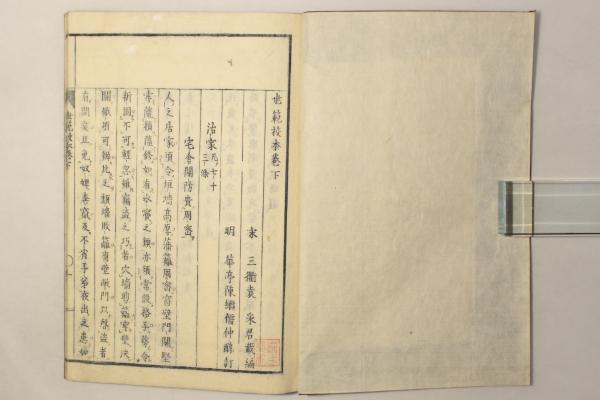 世範校本卷下
宋 三衢袁 采君載編
明 華亭陳繼儒仲醇訂
治家 凡七十三條
宅舍關防貴周密
人之居家須令垣墻高厚藩籬周密窗壁門關堅
牢隨損隨修如有水竇之類亦須常設格子務令
新固不可輕忽雖竊盜之巧者穴墻剪籬穿壁決
關俄頃可辦比之頹墻敗籬腐壁敞門以啓盜者
有間矣且免奴婢奔竄及不肖子弟夜出之患如
世範校本卷下